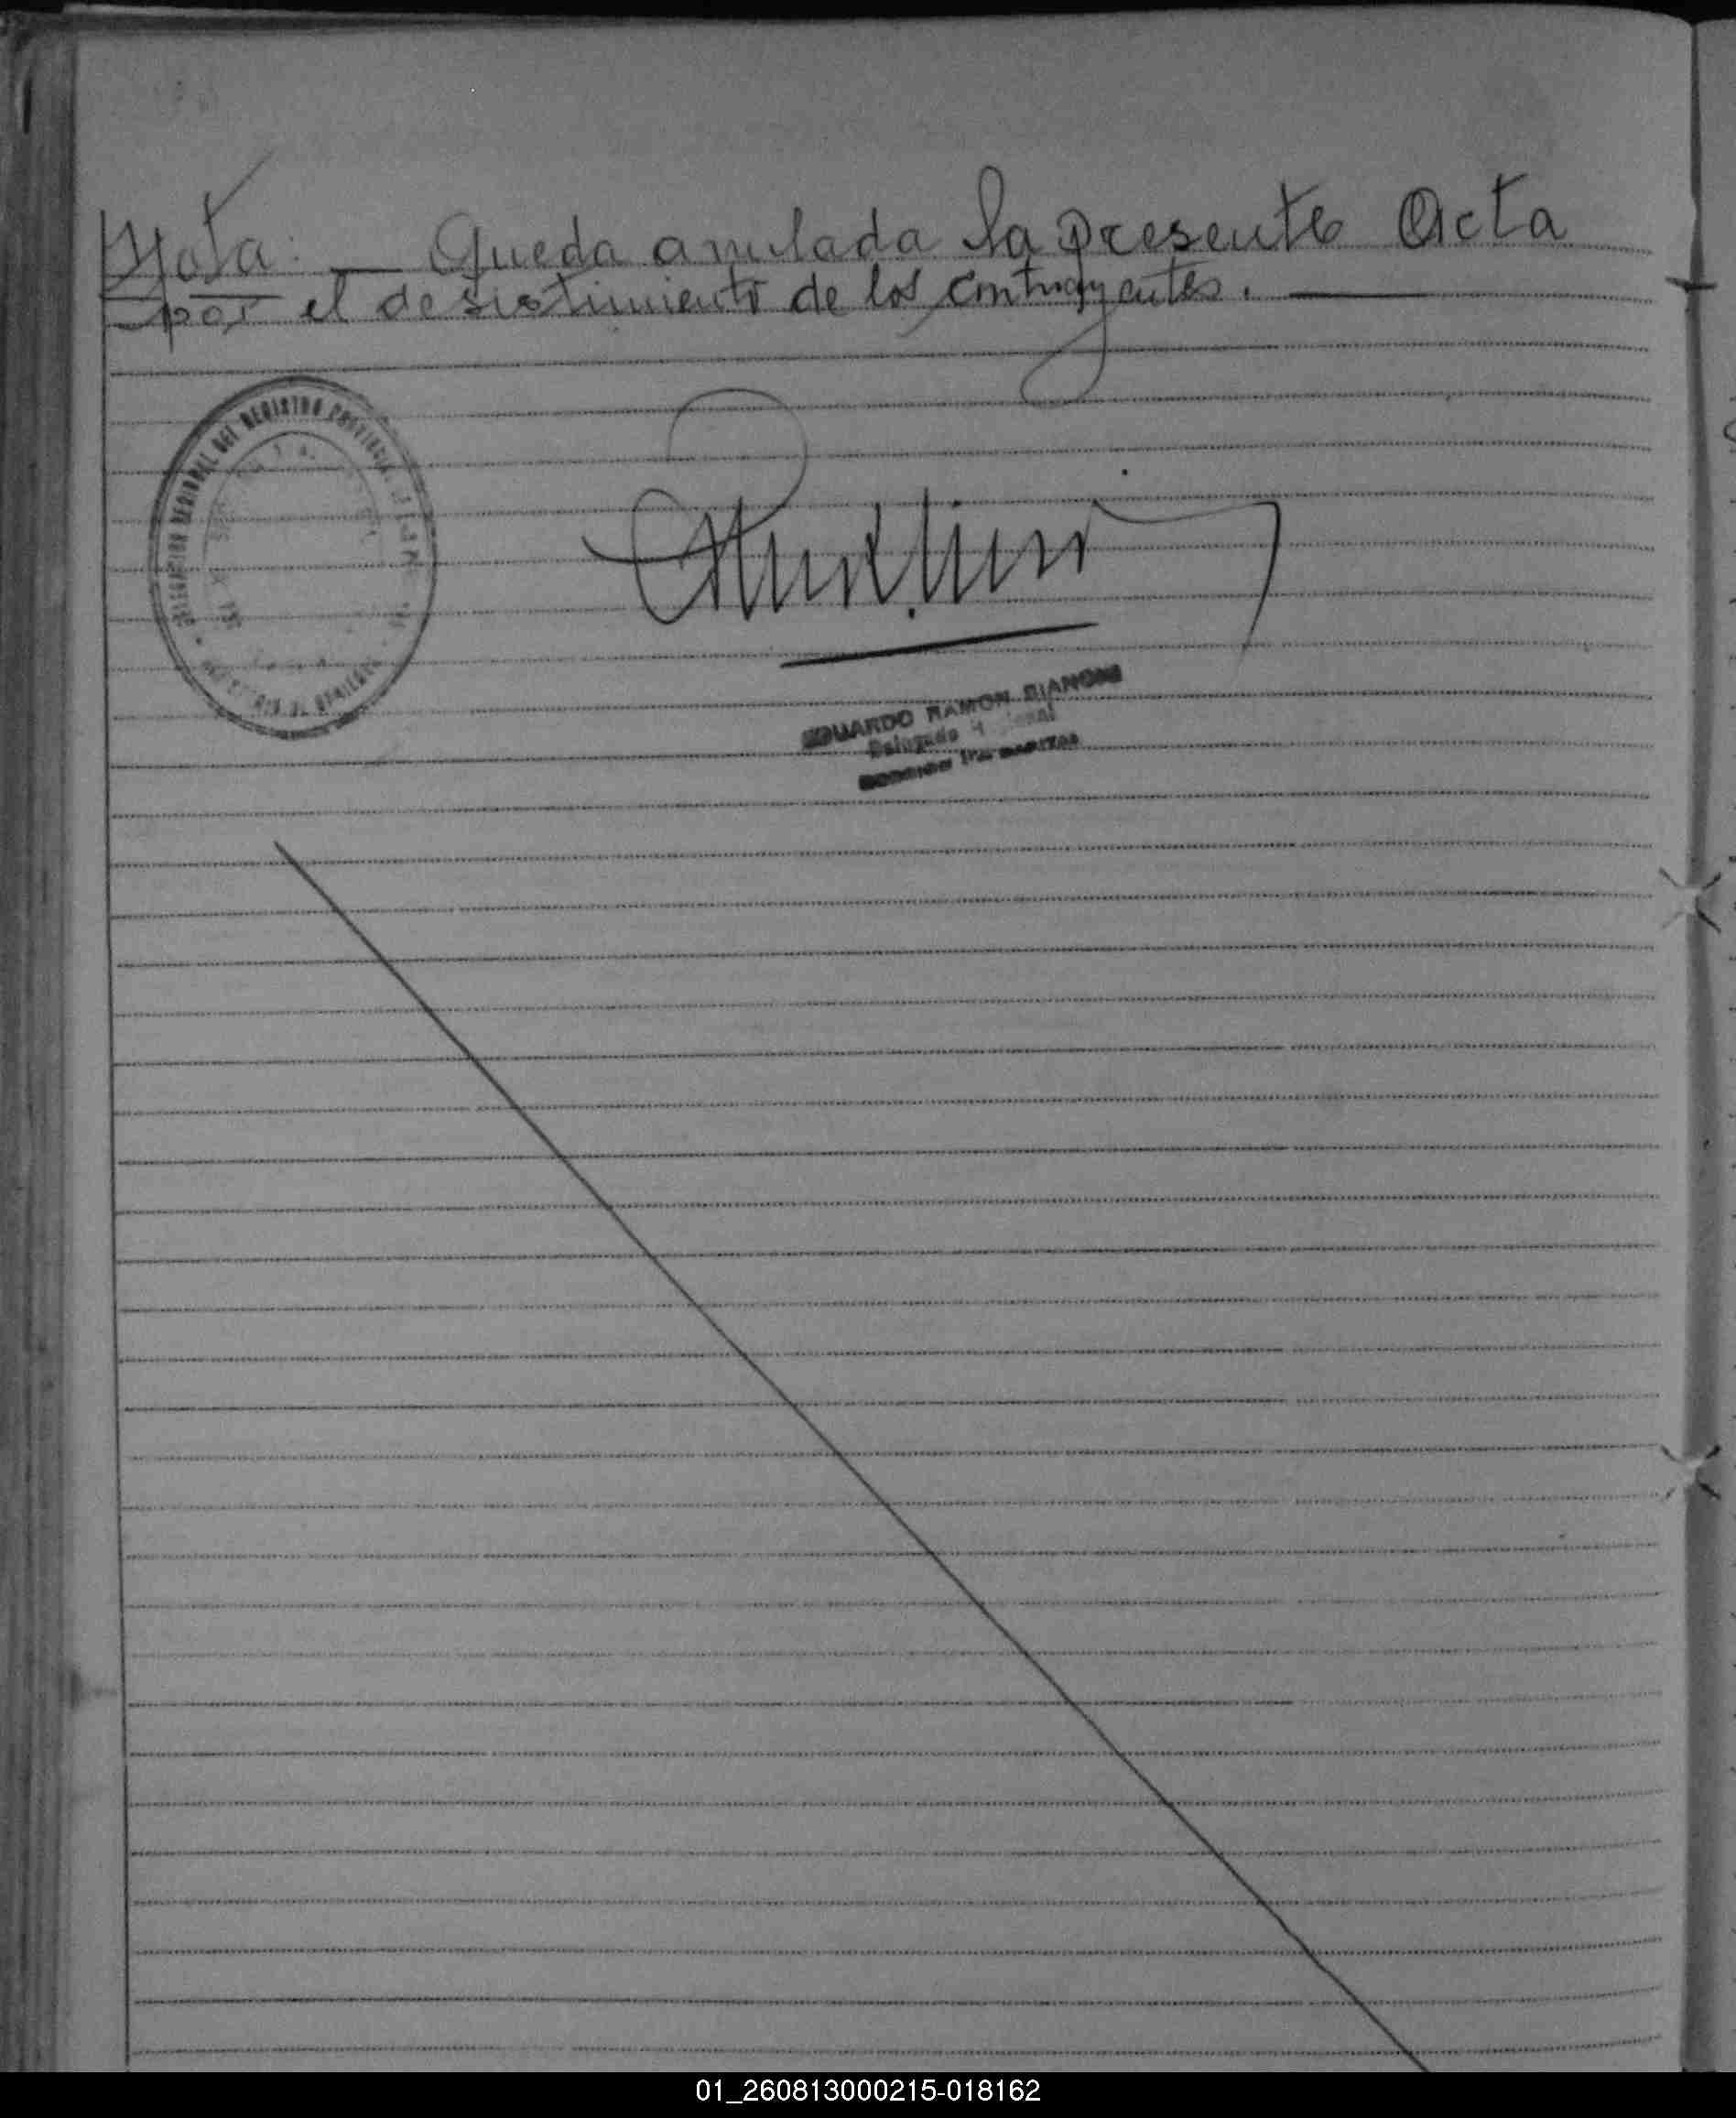 Nota: — Queda anulada la presente Acta
por el desistimiento de los contrayentes. —
DELEGACION REGIONAL DEL REGISTRO PROVINCIAL
EDUARDO RAMON BIANCHI
Delegado
01_260813000215-018162